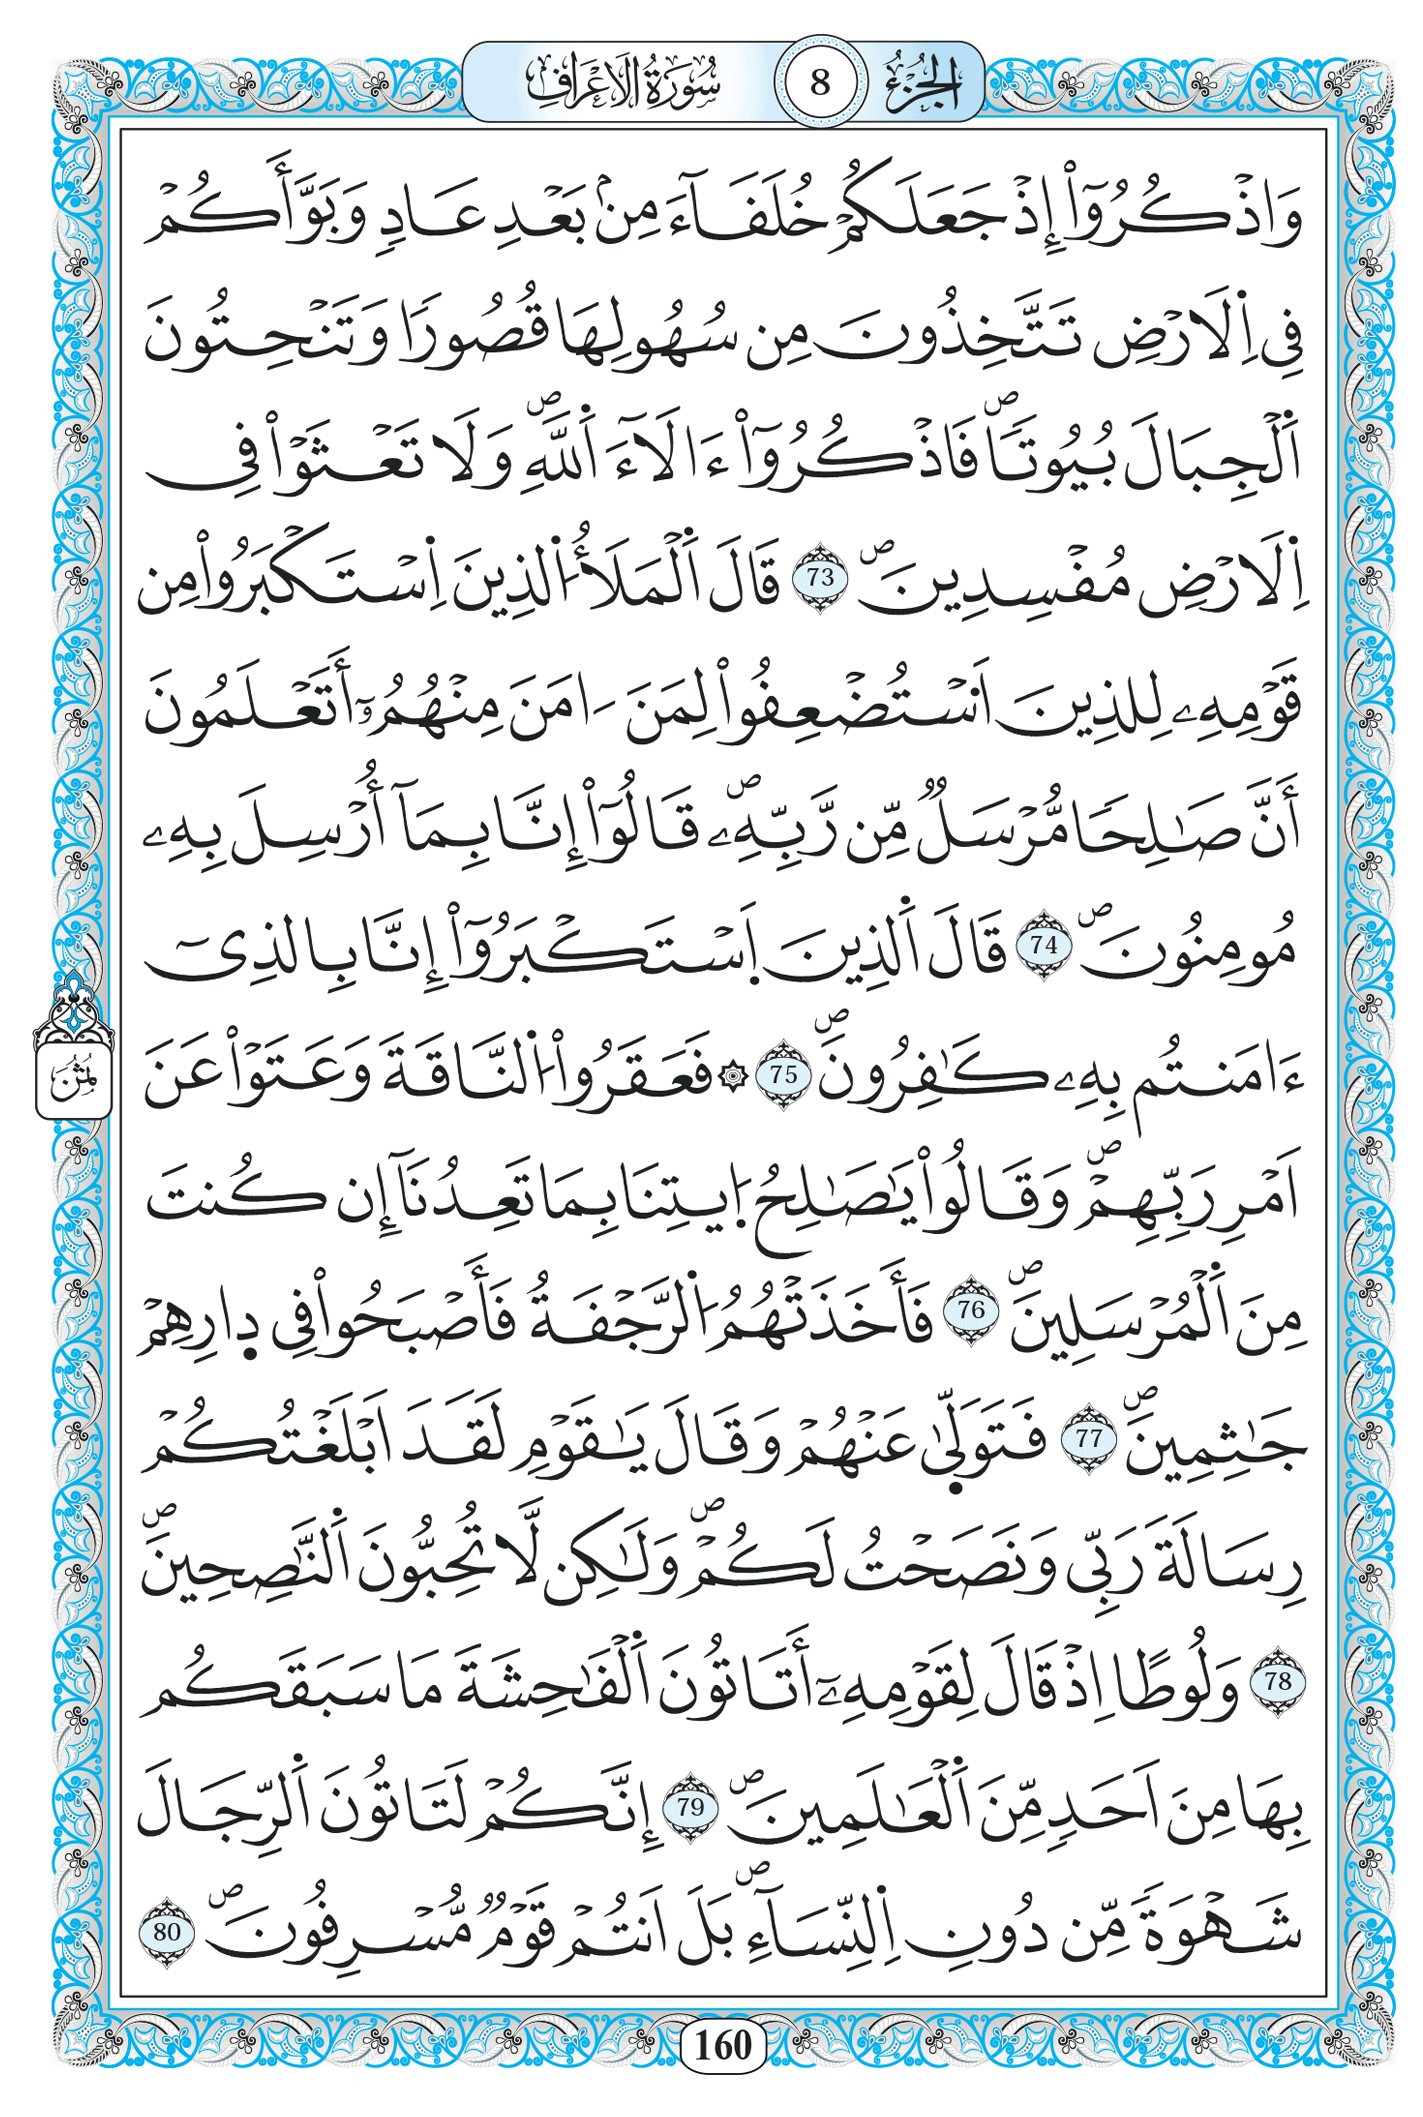 الجُزْءُ 8 سُورَةُ الَاعْرَافِ
وَاذْكُرُوٓاْ إِذْ جَعَلَكُمْ خُلَفَآءَ مِنۢ بَعْدِ عَادٖ وَبَوَّأَكُمْ
فِے اِ۬لَارْضِ تَتَّخِذُونَ مِن سُهُولِهَا قُصُوراٗ وَتَنْحِتُونَ
اَ۬لْجِبَالَ بُيُوتاٗۖ فَاذْكُرُوٓاْ ءَالَآءَ اَ۬للَّهِۖ وَلَا تَعْثَوْاْ فِے
اِ۬لَارْضِ مُفْسِدِينَۖ 73 قَالَ اَ۬لْمَلَأُ اُ۬لذِينَ اَ۪سْتَكْبَرُواْ مِن
قَوْمِهِۦ لِلذِينَ اَ۟سْتُضْعِفُواْ لِمَنَ اٰمَنَ مِنْهُمُۥٓ أَتَعْلَمُونَ
أَنَّ صَٰلِحاٗ مُّرْسَلٞ مِّن رَّبِّهِۦۖ قَالُوٓاْ إِنَّا بِمَآ أُرْسِلَ بِهِۦ
مُومِنُونَۖ 74 قَالَ اَ۬لذِينَ اَ۪سْتَكْبَرُوٓاْ إِنَّا بِالذِےٓ
ءَامَنتُم بِهِۦ كَٰفِرُونَۖ 75 ۞ فَعَقَرُواْ اُ۬لنَّاقَةَ وَعَتَوْاْ عَنَ
اَمْرِ رَبِّهِمْۖ وَقَالُواْ يَٰصَٰلِحُ اُ۪يتِنَا بِمَا تَعِدُنَآ إِن كُنتَ
مِنَ اَ۬لْمُرْسَلِينَۖ 76 فَأَخَذَتْهُمُ اُ۬لرَّجْفَةُ فَأَصْبَحُواْ فِے دِارِهِمْ
جَٰثِمِينَۖ 77 فَتَوَلَّيٰ عَنْهُمْ وَقَالَ يَٰقَوْمِ لَقَدَ اَبْلَغْتُكُمْ
رِسَالَةَ رَبِّے وَنَصَحْتُ لَكُمْۖ وَلَٰكِن لَّا تُحِبُّونَ اَ۬لنَّٰصِحِينَۖ
78 وَلُوطاً اِذْ قَالَ لِقَوْمِهِۦٓ أَتَاتُونَ اَ۬لْفَٰحِشَةَ مَا سَبَقَكُم
بِهَا مِنَ اَحَدٖ مِّنَ اَ۬لْعَٰلَمِينَۖ 79 إِنَّكُمْ لَتَاتُونَ اَ۬لرِّجَالَ
شَهْوَةٗ مِّن دُونِ اِ۬لنِّسَآءِۖ بَلَ اَنتُمْ قَوْمٞ مُّسْرِفُونَۖ 80
ثُمُن
160